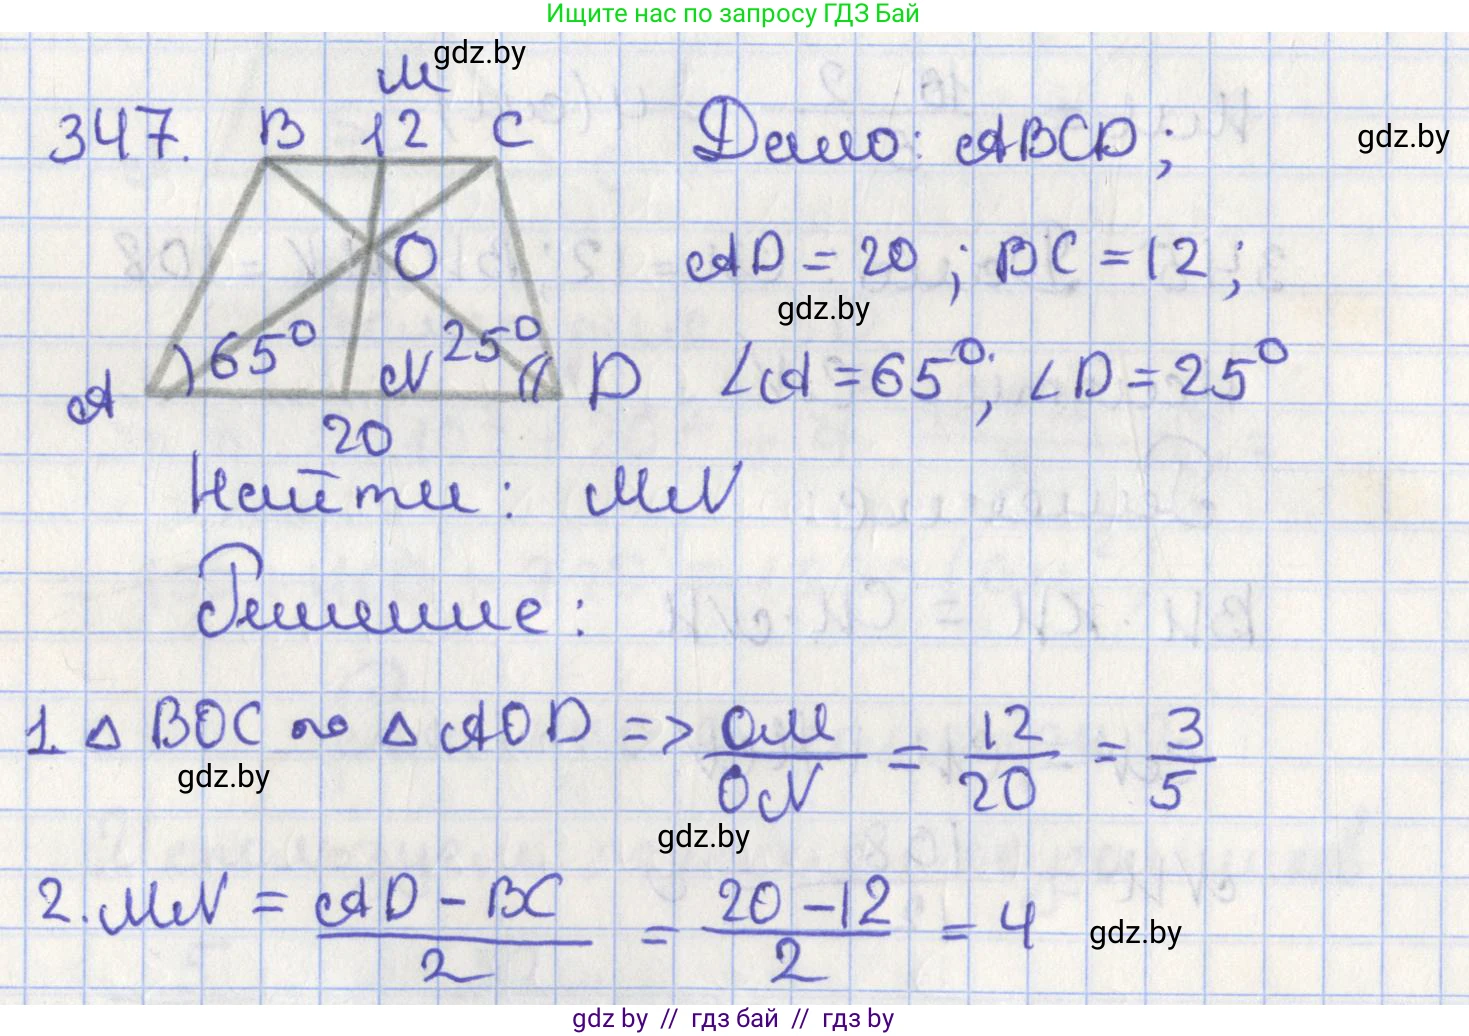 Ищите нас по запросу ГДЗ Бай
gdz.by
M
347. B 12 C Дано: ABCD;
gdz.by
O AD = 20; BC = 12;
gdz.by
A 65° N 25° D ∠A = 65°; ∠D = 25°
20
Найти: MN
Решение:
1. △ BOC ∾ △ AOD => OM/ON = 12/20 = 3/5
gdz.by
gdz.by
2. MN = (AD - BC)/2 = (20 - 12)/2 = 4
gdz.by
gdz by // гдз бай // гдз by